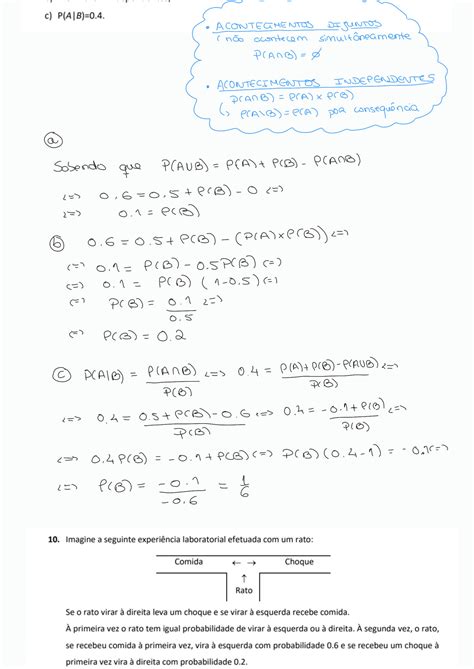 c) P(A|B)=0.4.
• ACONTECIMENTOS DISJUNTOS
(não acontecem simultâneamente
P(A∩B) = ∅
• ACONTECIMENTOS INDEPENDENTES
P(A∩B) = P(A) × P(B)
↳ P(A\B) = P(A) por consequência
ⓐ
Sabendo que P(A∪B) = P(A) + P(B) - P(A∩B)
<=> 0.6 = 0.5 + P(B) - 0 <=>
<=> 0.1 = P(B)
ⓑ 0.6 = 0.5 + P(B) - (P(A) × P(B)) <=>
<=> 0.1 = P(B) - 0.5P(B) <=>
<=> 0.1 = P(B) (1-0.5) <=>
<=> P(B) = 0.1/0.5 <=>
<=> P(B) = 0.2
ⓒ P(A|B) = P(A∩B)/P(B) <=> 0.4 = P(A)+P(B)-P(A∪B)/P(B) <=>
<=> 0.4 = 0.5+P(B)-0.6/P(B) <=> 0.4 = -0.1+P(B)/P(B) <=>
<=> 0.4P(B) = -0.1+P(B) <=> P(B)(0.4-1) = -0.1 <=>
<=> P(B) = -0.1/-0.6 = 1/6
10. Imagine a seguinte experiência laboratorial efetuada com um rato:
Comida ← → Choque
↑
Rato
Se o rato virar à direita leva um choque e se virar à esquerda recebe comida.
À primeira vez o rato tem igual probabilidade de virar à esquerda ou à direita. À segunda vez, o rato,
se recebeu comida à primeira vez, vira à esquerda com probabilidade 0.6 e se recebeu um choque à
primeira vez vira à direita com probabilidade 0.2.